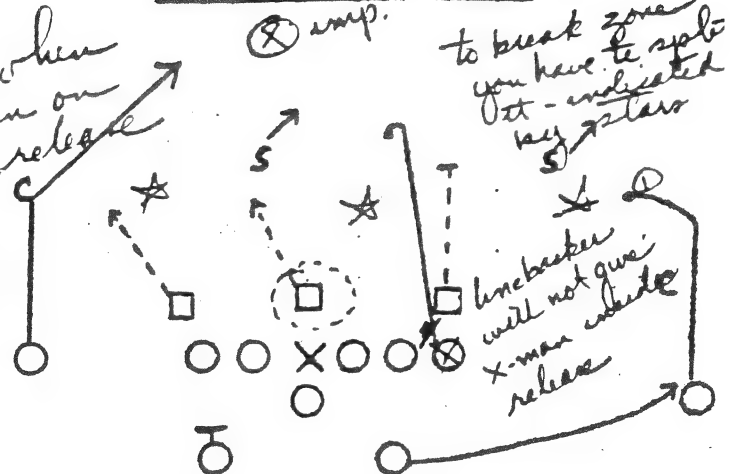 when
on
release
X imp.
to break zone
you have to split
it - indicated
by stars
S
S
C
C
linebacker
will not give
x-man inside
release
X
X